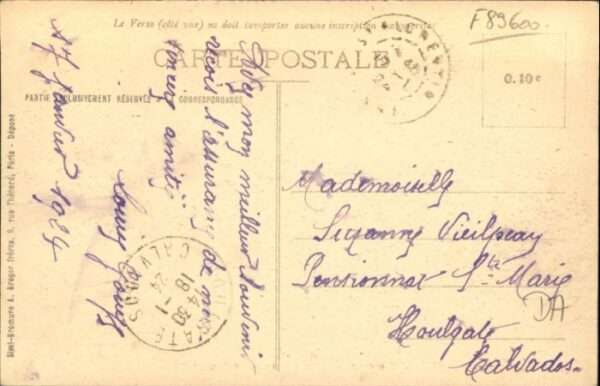 F89600
Le Verso (côté vue) ne doit comporter aucune inscription
CARTE POSTALE
0.10c
PARTIE EXCLUSIVEMENT RÉSERVÉE A LA CORRESPONDANCE
17 Janvier 1924
mon meilleur souvenir
recois l'assurance de mes
amitiés
Mademoiselle
Suzanne Vieilpeau
Pensionnat Ste Marie
Houlgate
Calvados
DA
ST FLORENTIN
CALVADOS
18-1
24
Simi-Bromure A. Breger frères, 9, rue Thénard, Paris - Déposé